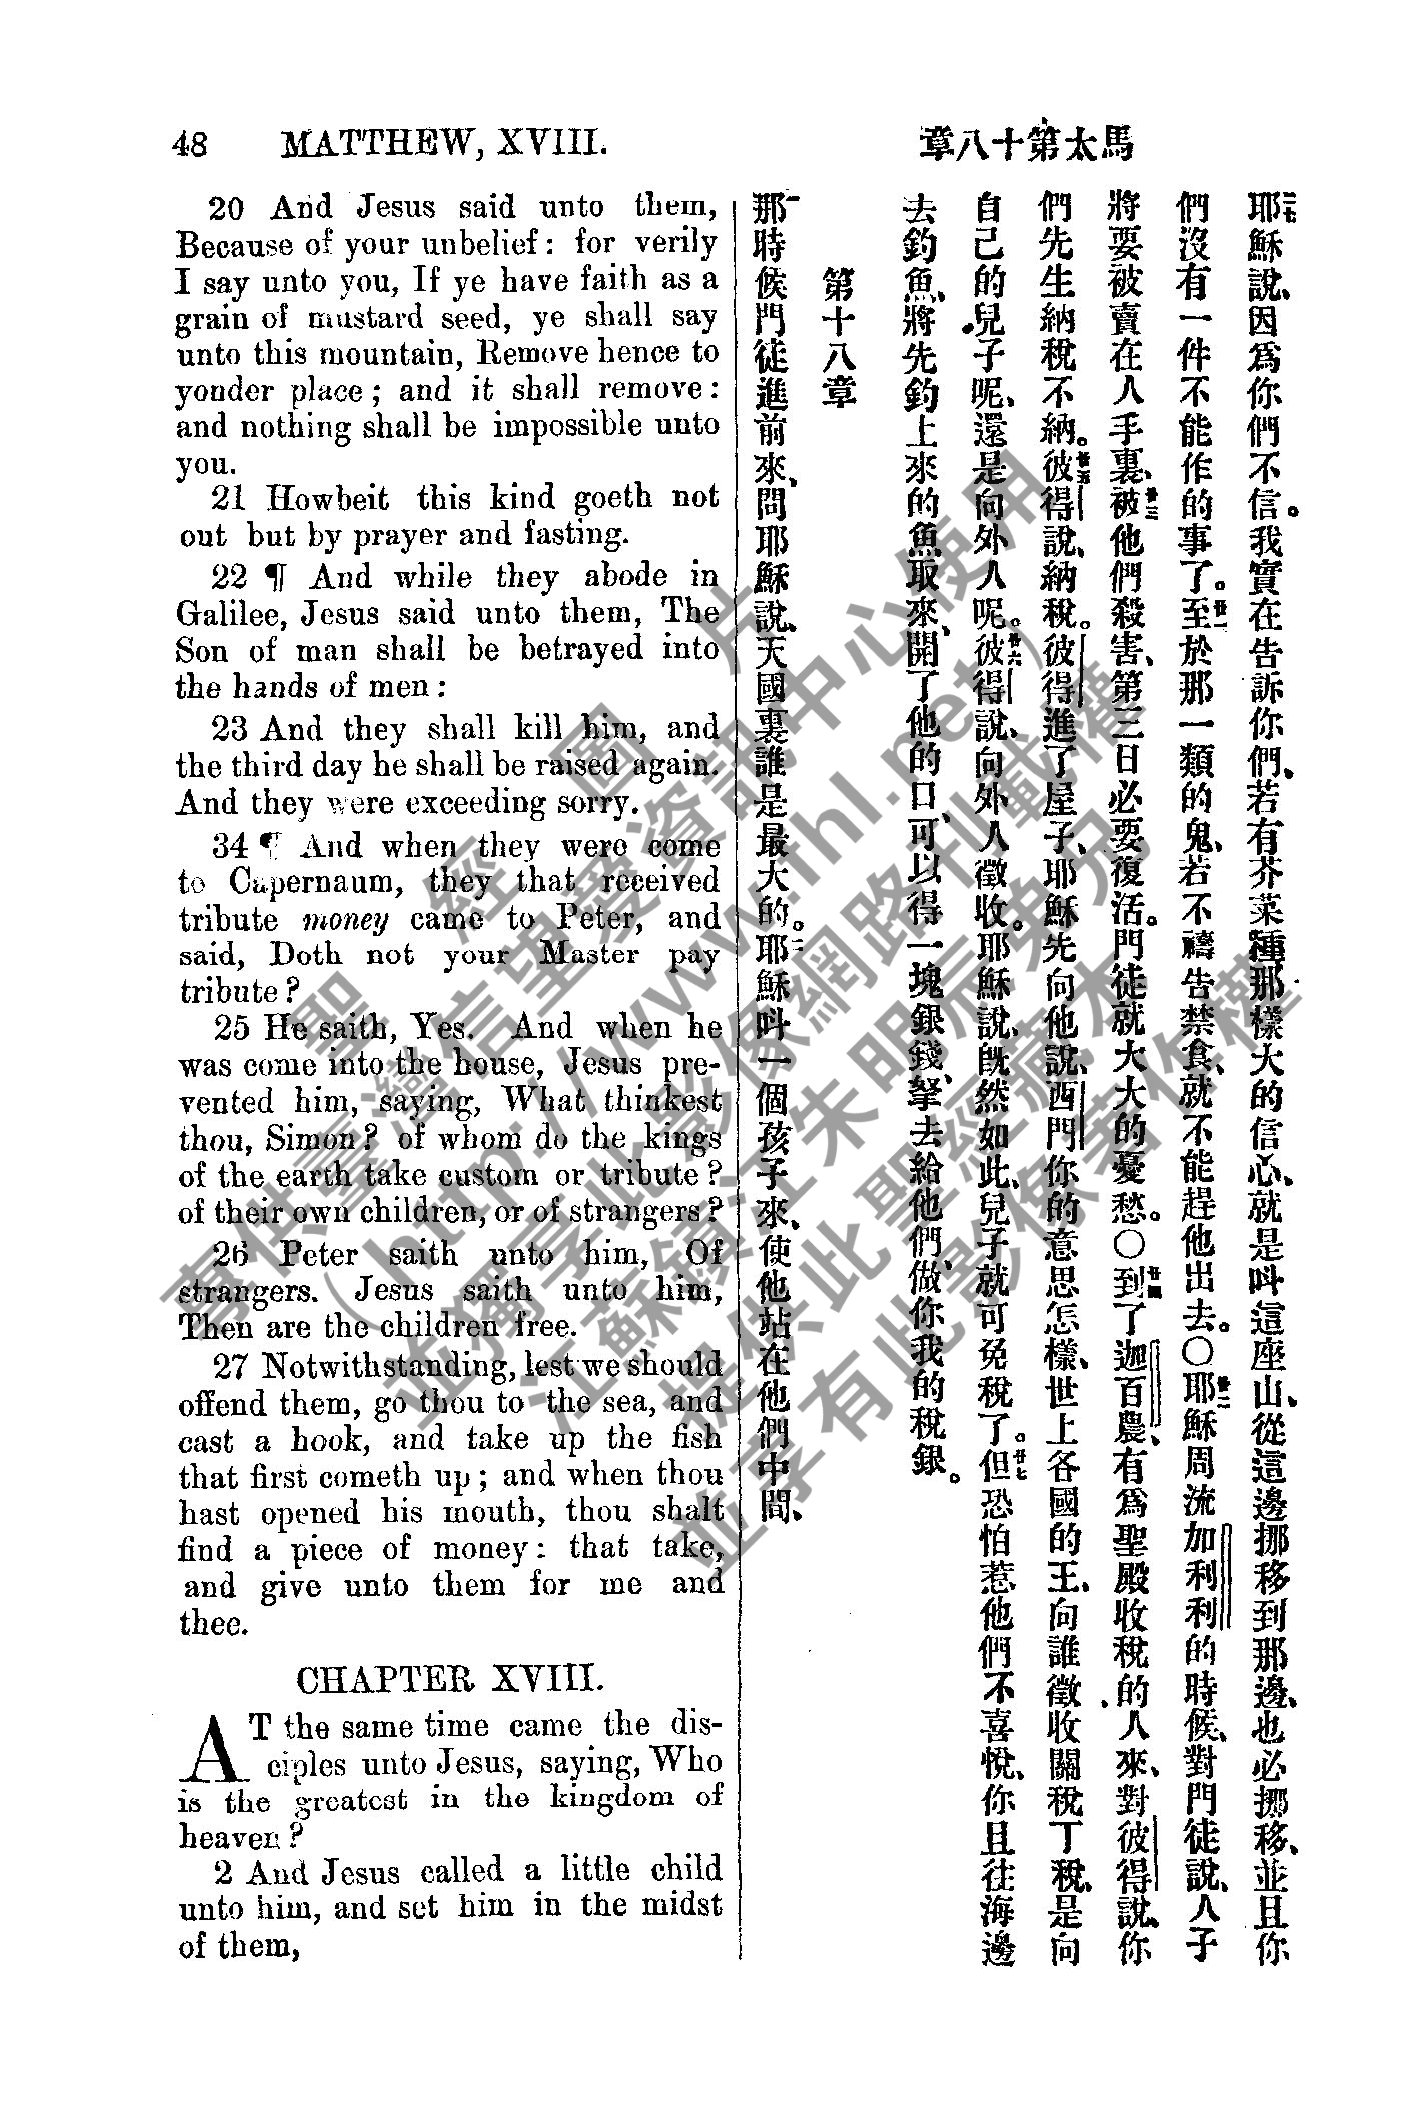 48 MATTHEW, XVIII.
馬太第十八章
20 And Jesus said unto them,
Because of your unbelief: for verily
I say unto you, If ye have faith as a
grain of mustard seed, ye shall say
unto this mountain, Remove hence to
yonder place; and it shall remove:
and nothing shall be impossible unto
you.
21 Howbeit this kind goeth not
out but by prayer and fasting.
22 ¶ And while they abode in
Galilee, Jesus said unto them, The
Son of man shall be betrayed into
the hands of men:
23 And they shall kill him, and
the third day he shall be raised again.
And they were exceeding sorry.
34 ¶ And when they were come
to Capernaum, they that received
tribute money came to Peter, and
said, Doth not your Master pay
tribute?
25 He saith, Yes. And when he
was come into the house, Jesus pre-
vented him, saying, What thinkest
thou, Simon? of whom do the kings
of the earth take custom or tribute?
of their own children, or of strangers?
26 Peter saith unto him, Of
strangers. Jesus saith unto him,
Then are the children free.
27 Notwithstanding, lest we should
offend them, go thou to the sea, and
cast a hook, and take up the fish
that first cometh up; and when thou
hast opened his mouth, thou shalt
find a piece of money: that take,
and give unto them for me and
thee.
CHAPTER XVIII.
AT the same time came the dis-
ciples unto Jesus, saying, Who
is the greatest in the kingdom of
heaven?
2 And Jesus called a little child
unto him, and set him in the midst
of them,
耶穌說、因爲你們不信。我實在告訴你們、若有芥菜種那樣大的信心、就是呌這座山、從這邊挪移到那邊、也必挪移、並且你
們沒有一件不能作的事了。至於那一類的鬼、若不禱告禁食、就不能趕他出去。○耶穌周流加利利的時候、對門徒說、人子
將要被賣在人手裏、被他們殺害、第三日必要復活。門徒就大大的憂愁。○到了迦百農、有爲聖殿收稅的人來、對彼得說、你
們先生納稅不納。彼得說、納稅。彼得進了屋子、耶穌先向他說、西門你的意思怎樣、世上各國的王、向誰徵收關稅丁稅、是向
自己的兒子呢、還是向外人呢。彼得說、向外人徵收。耶穌說、旣然如此、兒子就可免稅了。但恐怕惹他們不喜悅、你且往海邊
去釣魚、將先釣上來的魚取來、開了他的口、可以得一塊銀錢、拏去給他們、做你我的稅銀。
第十八章
那時候門徒進前來、問耶穌說、天國裏誰是最大的。耶穌呌一個孩子來、使他站在他們中間、
聖經圖片
專供臺灣信望愛資訊中心使用
（http://www.fhl.net）
並獨享此影像網路刊載權
江蘇鎮江朱明辰弟兄
提供此聖經藏本
並享有此影像著作權